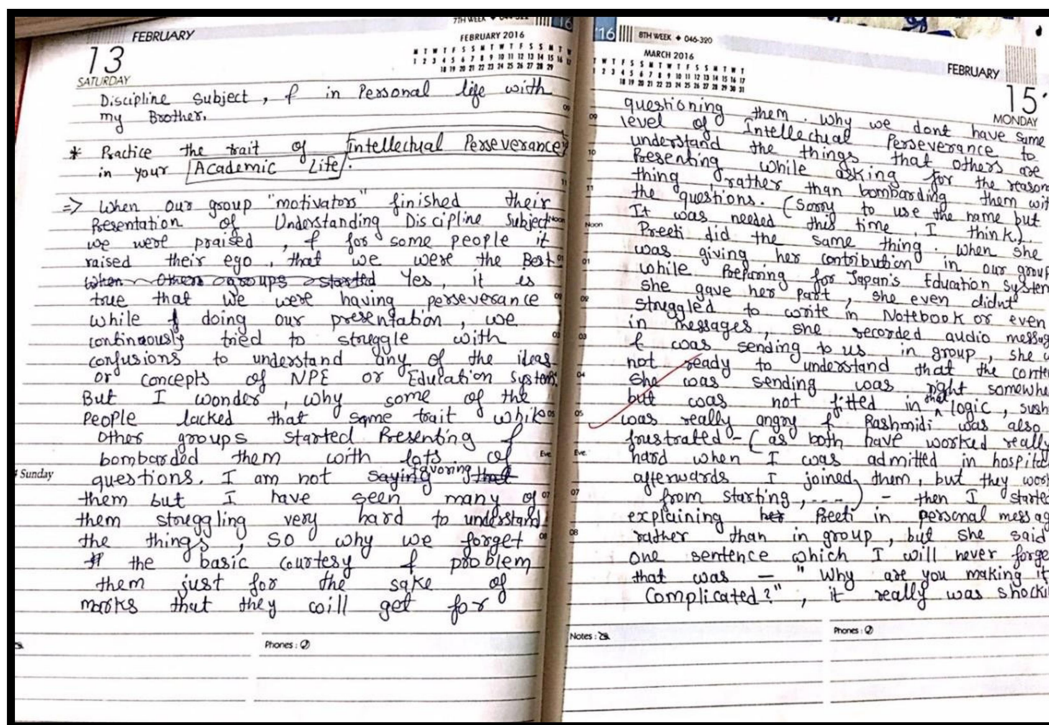 FEBRUARY
13
SATURDAY
7TH WEEK
FEBRUARY 2016
M T W T F S S M T W T F S S M T W
1 2 3 4 5 6 7 8 9 10 11 12 13 14 15 16 17
18 19 20 21 22 23 24 25 26 27 28 29
Discipline Subject, & in Personal life with
my Brother.
* Practice the trait of Intellectual Perseverance
in your Academic Life.
=> When our group "motivators" finished their
Presentation of Understanding Discipline Subject
we were praised, & for some people it
raised their ego, that we were the Best
when others groups started Yes, it is
true that we were having perseverance
while doing our presentation, we
continuously tried to struggle with
confusions to understand any of the ideas
or concepts of NPE or Education System.
But I wonder, why some of the
People lacked that same trait while
other groups started Presenting &
bombarded them with lots of
Sunday
questions. I am not saying favoring that
them but I have seen many of
them struggling very hard to understand
the things, so why we forget
the basic courtesy & problem
them just for the sake of
marks that they will get for
Phones :
16
8TH WEEK ✦ 046-320
MARCH 2016
T W T F S S M T W T F S S M T W T
1 2 3 4 5 6 7 8 9 10 11 12 13 14 15 16 17
18 19 20 21 22 23 24 25 26 27 28 29 30 31
FEBRUARY
15
MONDAY
questioning them. Why we dont have same
level of Intellectual Perseverance to
understand the things that others are
Presenting while asking for the reason
thing, rather than bombarding them with
the questions. (Sorry to use the name but
It was needed this time, I think)
Preeti did the same thing. when she
was giving her contribution in our group
while Preparing for Japan's Eduation System
she gave her part, she even didnt
struggled to write in Nottbook or even
in messages, she recorded audio messag
& was sending to us in group, she w
not ready to understand that the conte
she was sending was right somewhe
but was not fitted in the logic, sush
was really angry & Rashmidi was also
frustrated - (as both have worked really
hard when I was admitted in hospital
afterwards I joined them, but they wor
from starting, ....) - then I started
explaining her Preeti in personal messag
rather than in group, but she said
one sentence which I will never forge
that was - "Why are you making it
Complicated?", it really was shocki
Notes :
Phones :